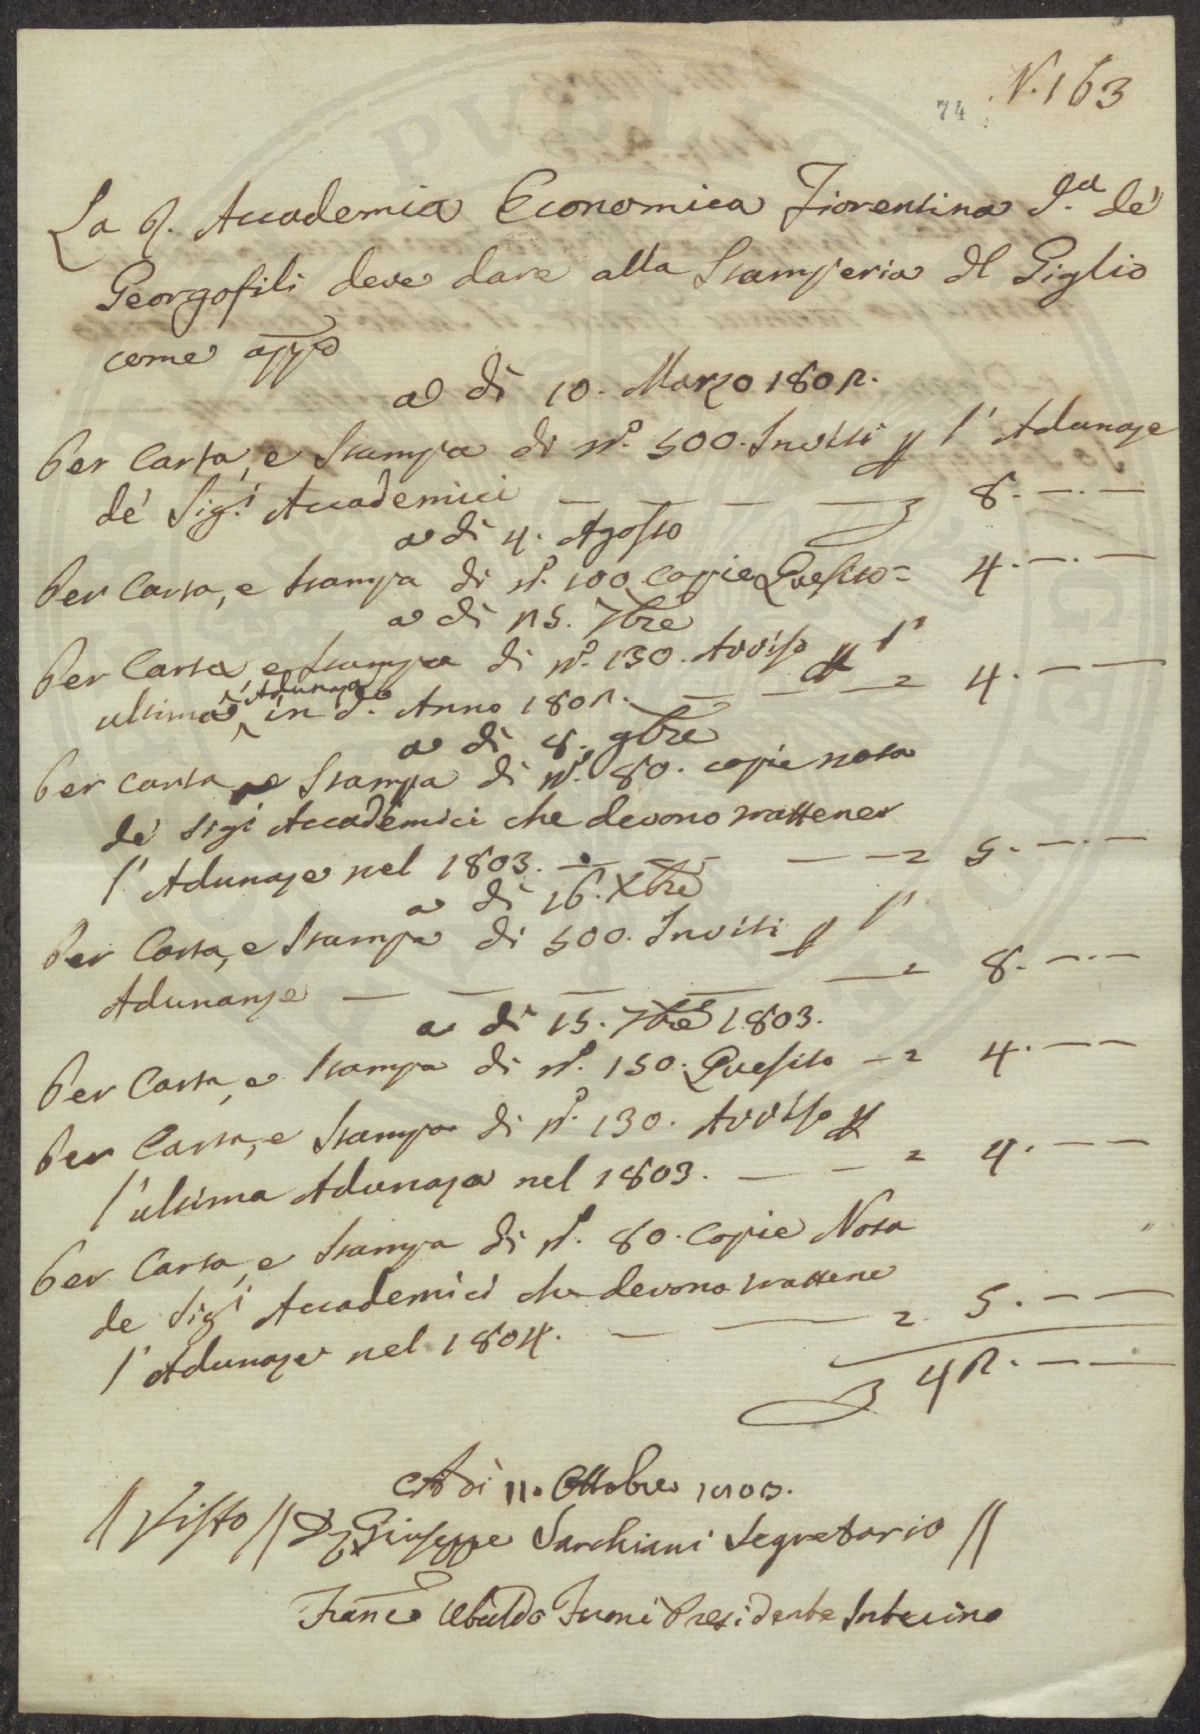 N. 163
74
La R. Accademia Economica Fiorentina d.a de'
Georgofili deve dare alla Stamperia del Giglio
come app.o
a dì 10. Marzo 1802.
Per Carta, e Stampa di N.o 500. Inviti p l'Adunaze
de' Sig.i Accademici 8. —. —
a dì 4. Agosto
Per Carta, e Stampa di N.o 100 Copie Quesito = 4. —. —
a dì 25. 7bre
Per Carta, e Stampa di N.o 130. Avviso p l'
ultima Adunaza in d.o Anno 1802. — — — = 4. — —
a dì 8. 9bre
Per Carta, e Stampa di N.o 80. copie nota
de' Sigi Accademici che devono trattener
l'Adunaze nel 1803. — — — — = 5. —. —
a dì 16. Xbre
Per Carta, e Stampa di 500. Inviti p l'
Adunanze — — — — — = 8. —. —
a dì 15. 7bre 1803.
Per Carta, e Stampa di N.o 150. Quesito — = 4. — —
Per Carta, e Stampa di N.o 130. Avviso p
l'ultima Adunaza nel 1803. — — = 4. — —
Per Carta, e Stampa di N.o 80. Copie Nota
de Sigi Accademici che devono trattene
l'Adunaze nel 1804. — — = 5. — —
42. — —
A dì 11. Ottobre 1803.
// Visto // Dr Giuseppe Sarchiani Segretario //
Franc.o Ubaldo Presidente Interino